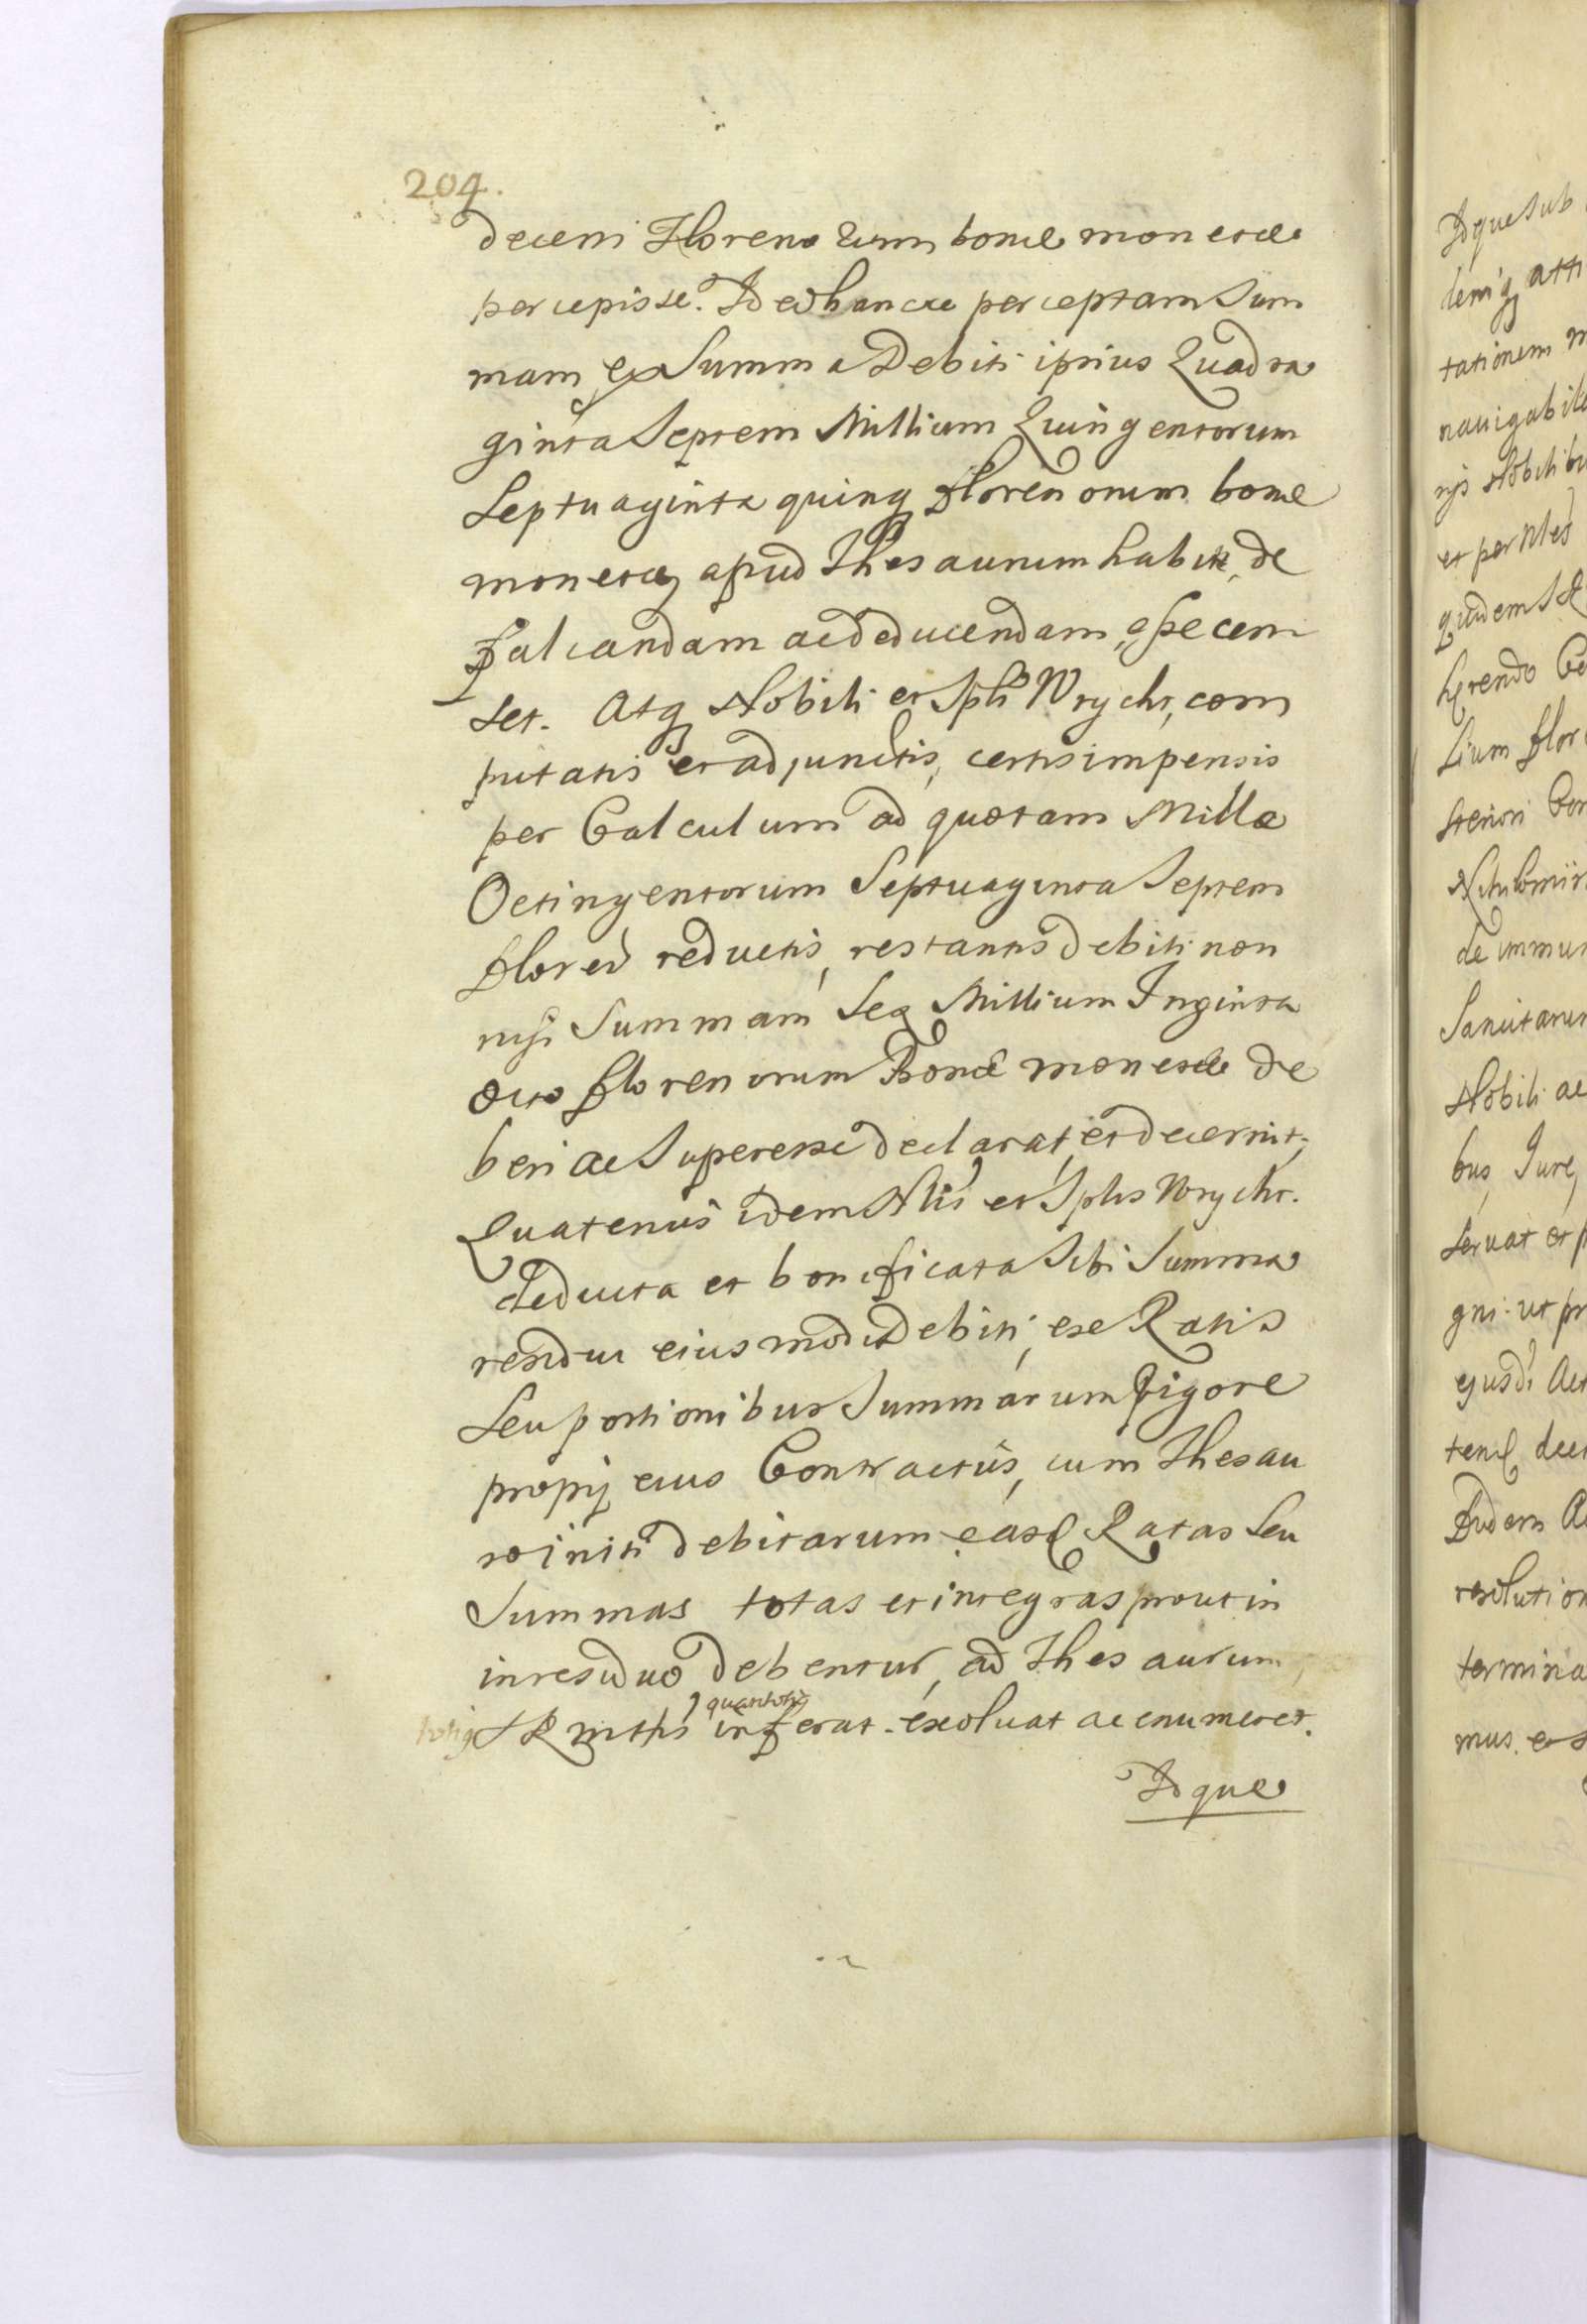 204.
decem Florenorum bonae monetae
percepisse. Ideo hancce perceptam Sum
mam, ex Summa Debiti ipsius Quadra
ginta Septem Millium Quingentorum
Septuaginta quinq florenorum bonae
monetae, apud Thesaurum habit, de
falcandam ac deducendam, esse cen
set. Atq Nobili et Spli Wrycht, com
putatis et adjunctis, certis impensis
per Calculum ad quotam Mille
Octingentorum Septuaginta Septem
floren reductis, restantis debiti non
nisi Summam Sex Millium Triginta
octo florenorum Bonae monetae de
beri ac Superesse declarat, et decernit;
Quatenus idem Nlis et Splis Wrycht.
deducta et bonificata Sibi Summa
residui eiusmodi Debiti, ex Ratis
Seu portionibus Summarum vigore
proprij eius Contractus, cum Thesau
ro initi debitarum easd Ratas Seu
Summas totas et integras prout in
in residuo debentur, ad Thesaurum
inferat. exoluat ac enumeret.
Idque
Idque sub
demq atti
tationem m
nauigabile
nijs Nobilibu
et per Nles
quidem Se
herendo
lium flor
sterior
de immun
Sanctarum
Nobili ac
bus, Jure,
Seruat et p
gni ut pr
ejusd Act
tend dec
Eudem A
resolution
termina
mus. et